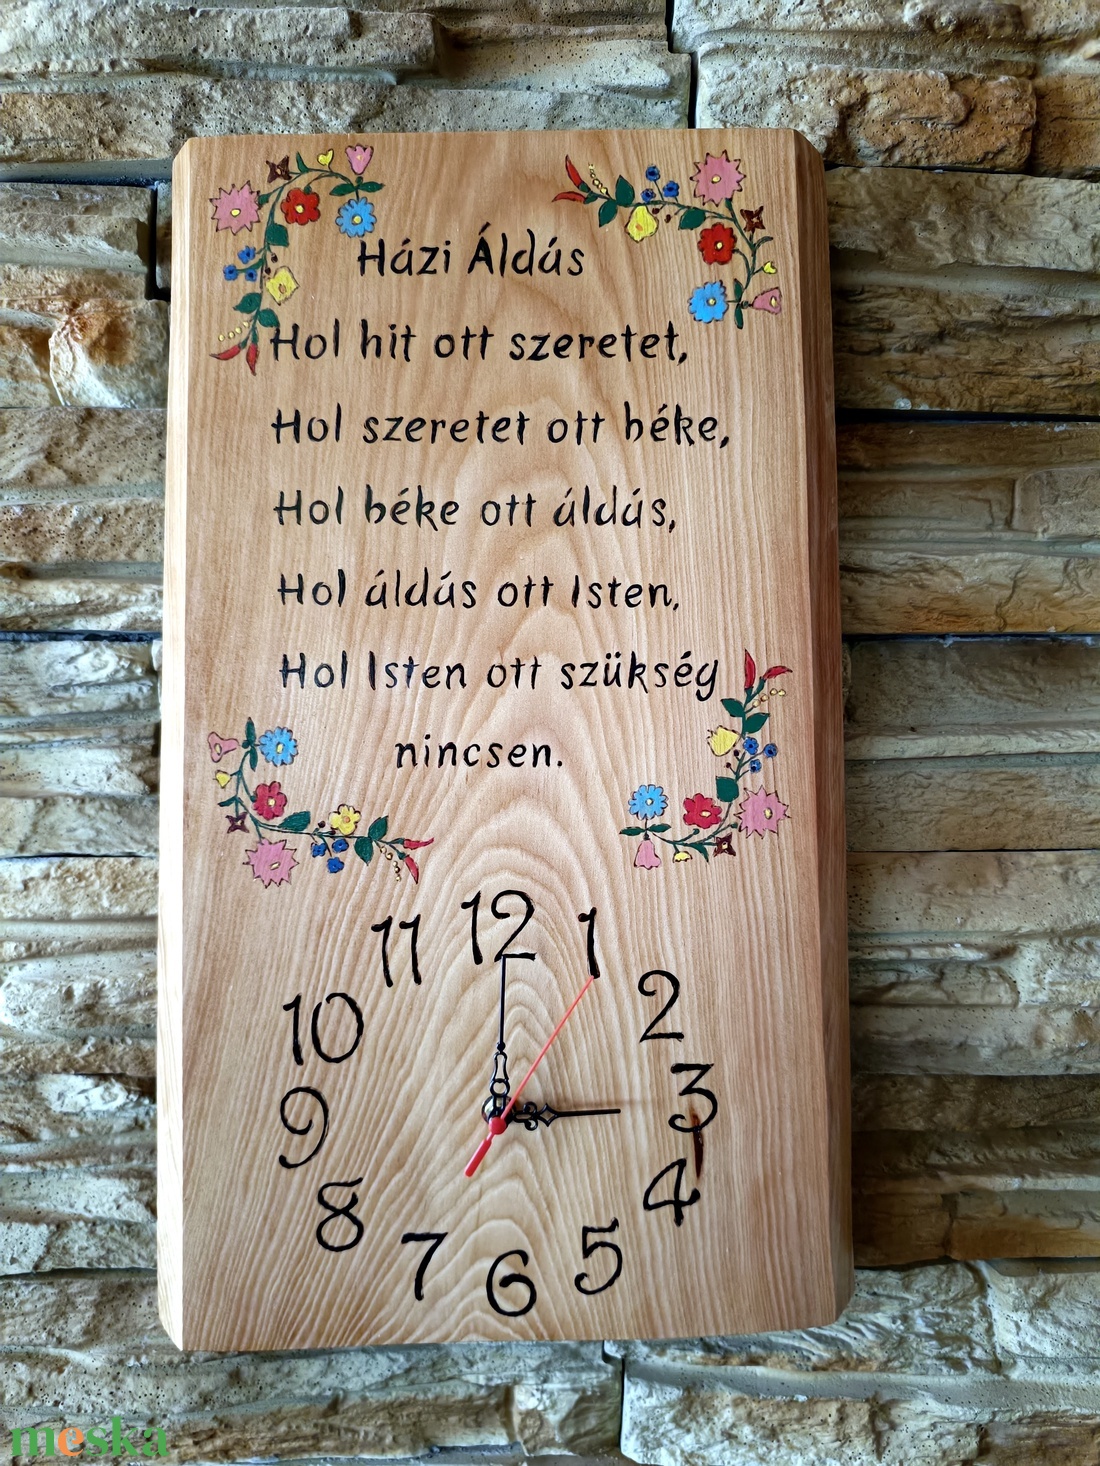 Házi Áldás
Hol hit ott szeretet,
Hol szeretet ott béke,
Hol béke ott áldás,
Hol áldás ott Isten,
Hol Isten ott szükség
nincsen.
12
11 1
10 2
9 3
8 4
7 5
6
meska